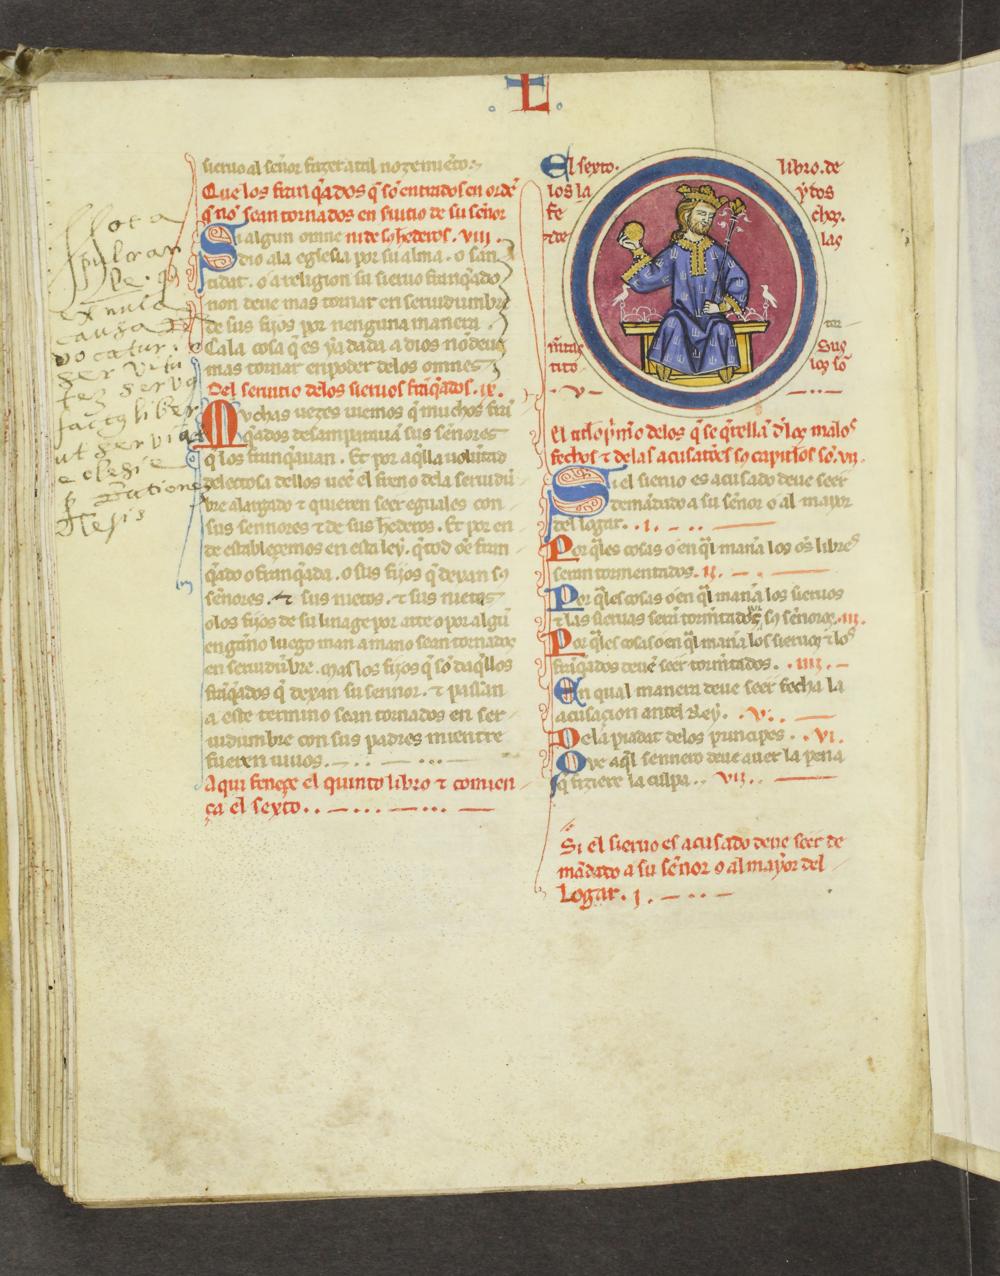 L
sieruo al señor fazer atal nozemiẽto.
Que los franq̃ados q̃ sõ entrados en ordẽ
q̃ no sean tornados en s̃uitio de su señor
Si algun omne ni de sꝯ hederos. viii.
dio ala eglesia por su alma. o san
tidat. o a religion su sieruo franq̃ado
non deue mas tornar en seruidumbre
de sus fijos por nenguna manera.
Ca la cosa q̃ es ya dada a dios nõ deue
mas tornar en poder delos omnes
Del seruitio delos sieruos franq̃ados. ix.
Muchas uezes uiemos q̃ muchos frã
q̃ados desamparauã sus señores
q̃ los franq̃auan. Et por aq̃lla uoluntad
delectosa dellos ueẽ el freno dela seruidũ
bre alargado ⁊ quieren seer eguales con
sus sennores ⁊ de sus hederos. Et por en
de establecemos en esta ley. q̃ tod oẽ fran
q̃ado o franq̃ada. o sus fijos q̃ dexan sꝯ
señores. ⁊ sus nietos. ⁊ sus nietas
o los fijos de su linage por arte o por algũ
engaño luego man a mano sean tornados
en seruidũbre. mas los fijos q̃ sõ daq̃llos
franq̃ados q̃ dexan su sennor. ⁊ passan
a este termino sean tornados en ser
uidumbre con sus padres mientre
fueren uiuos.
Aqui feneçe el quinto libro ⁊ comien
ça el sexto.
El sexto. libro. de
los la ytos
fe chos.
⁊ de las
tor
mẽtos Sus
titꝉo los sõ
.v.
El titꝉo p̃mo delos q̃ se q̃rella d̃ los malos
fechos ⁊ delas acusatiões so capitꝉos sõ. vii.
Si el sieruo es acusado deue seer
demãdado a su señor o al mayor
del logar. .i.
Por q̃les cosas o en q̃l manã los oẽs libres
seran tormentados. ii.
Per q̃les cosas o en q̃l manã los sieruos
⁊ las sieruas serã tormẽtados por sꝯ señores. iii.
Por q̃les cosas o en q̃l manã los sieruos ⁊ los
franq̃ados deuẽ seer tormẽtados. .iiii.
En qual manera deue seer fecha la
acusacion antel Rey. .v.
Dela piadat delos principes. .vi.
Que aq̃l sennero deue auer la pena
q̃ fiziere la culpa. vii.
Si el sieruo es acusado deue seer de
mãdado a su señor o al mayor del
Logar. j.
Nota
pulcram
causa
vocatur.
liber
ut serviat